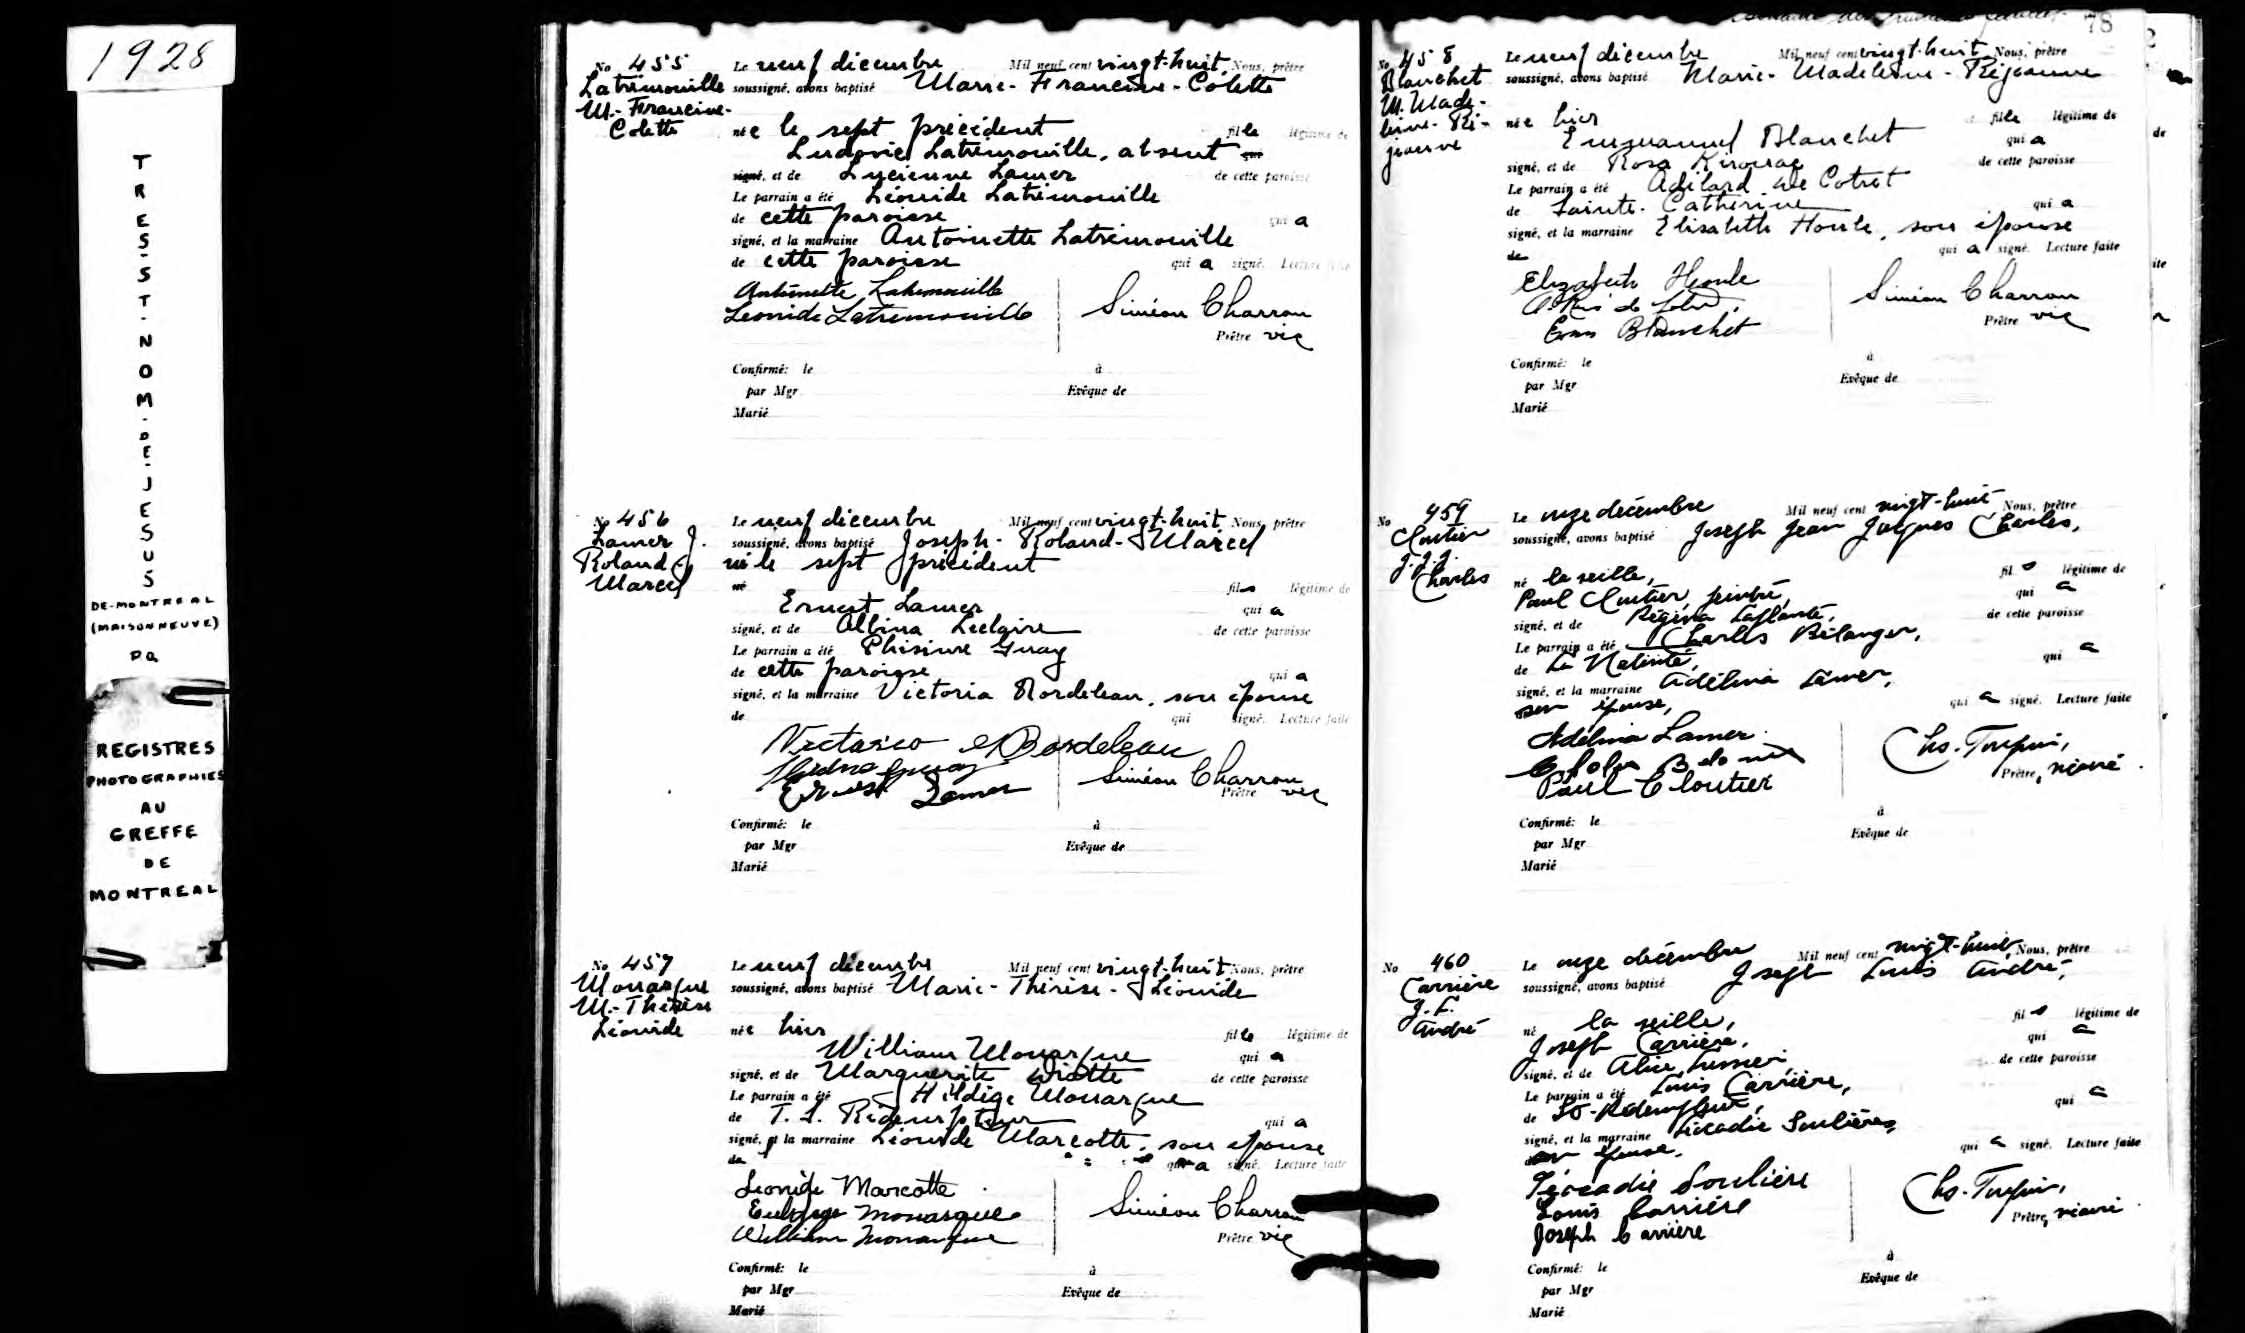 1928
TRES-ST-NOM-DE-JESUS
DE-MONTREAL
(MAISONNEUVE)
PQ
REGISTRES
PHOTOGRAPHIES
AU
GREFFE
DE
MONTREAL
No 455
Latrémouille
M.-Francine-
Colette
Le neuf décembre Mil neuf cent vingt-huit Nous, prêtre
soussigné, avons baptisé Marie-Francine-Colette
née le sept précédent fille légitime de
Ludovic Latrémouille, absent
signé, et de Lucienne Lamer de cette paroisse
Le parrain a été Léonide Latrémouille
de cette paroisse qui a
signé, et la marraine Antoinette Latrémouille
de cette paroisse qui a signé. Lecture faite
Antoinette Latremouille
Leonide Latremouille
Siméon Charron
Prêtre vic
Confirmé: le à
par Mgr Evêque de
Marié
No 456
Lamer J.
Roland-
Marcel
Le neuf décembre Mil neuf cent vingt-huit Nous, prêtre
soussigné, avons baptisé Joseph-Roland-Marcel
né le sept précédent
né fils légitime de
Ernest Lamer qui a
signé, et de Albina Leclaire de cette paroisse
Le parrain a été Guay
de cette paroisse qui a
signé, et la marraine Victoria Bordeleau, son épouse
de qui signé. Lecture faite
Bordeleau
Ernest Lamer
Siméon Charron
Prêtre vic
Confirmé: le à
par Mgr Evêque de
Marié
No 457
Monarque
M.-Thérèse
Léonide
Le neuf décembre Mil neuf cent vingt-huit Nous, prêtre
soussigné, avons baptisé Marie-Thérèse-Léonide
née hier fille légitime de
William Monarque qui a
signé, et de Marguerite de cette paroisse
Le parrain a été Monarque
de T. S. Rédempteur qui a
signé, et la marraine Léonide Marcotte, son épouse
de qui a signé. Lecture faite
Leonide Marcotte
Monarque
William Monarque
Siméon Charron
Prêtre vic
Confirmé: le à
par Mgr Evêque de
Marié
78
No 458
Blanchet
M. Made-
leine-Ré-
jeanne
Le neuf décembre Mil neuf cent vingt-huit Nous, prêtre
soussigné, avons baptisé Marie-Madeleine-Réjeanne
née hier fille légitime de
Emmanuel Blanchet qui a
signé, et de Rosa Kirouac de cette paroisse
Le parrain a été Adélard de Cotret
de Sainte-Catherine qui a
signé, et la marraine Elisabeth Houle, son épouse
de qui a signé. Lecture faite
Elizabeth Houle
Blanchet
Siméon Charron
Prêtre vic
Confirmé: le à
par Mgr Evêque de
Marié
No 459
Cloutier
J.J.J.
Charles
Le onze décembre Mil neuf cent vingt-huit Nous, prêtre
soussigné, avons baptisé Joseph Jean Jacques Charles,
né la veille, fils légitime de
Paul Cloutier, peintre, qui a
signé, et de Régina Laplante, de cette paroisse
Le parrain a été Charles Bélanger,
de La Nativité, qui a
signé, et la marraine Adélina Lamer,
son épouse, qui a signé. Lecture faite
Adélina Lamer
Paul Cloutier
Chs. Toupin,
Prêtre, vicaire
Confirmé: le à
par Mgr Evêque de
Marié
No 460
Carrière
J. L.
André
Le onze décembre Mil neuf cent vingt-huit Nous, prêtre
soussigné, avons baptisé Joseph Louis André,
né la veille, fils légitime de
Joseph Carrière, qui a
signé, et de Alice de cette paroisse
Le parrain a été Louis Carrière,
de St-Rédempteur, qui a
signé, et la marraine Léocadie Soulières,
son épouse, qui a signé. Lecture faite
Léocadie Soulière
Louis Carrière
Joseph Carrière
Chs. Toupin,
Prêtre, vicaire
Confirmé: le à
par Mgr Evêque de
Marié